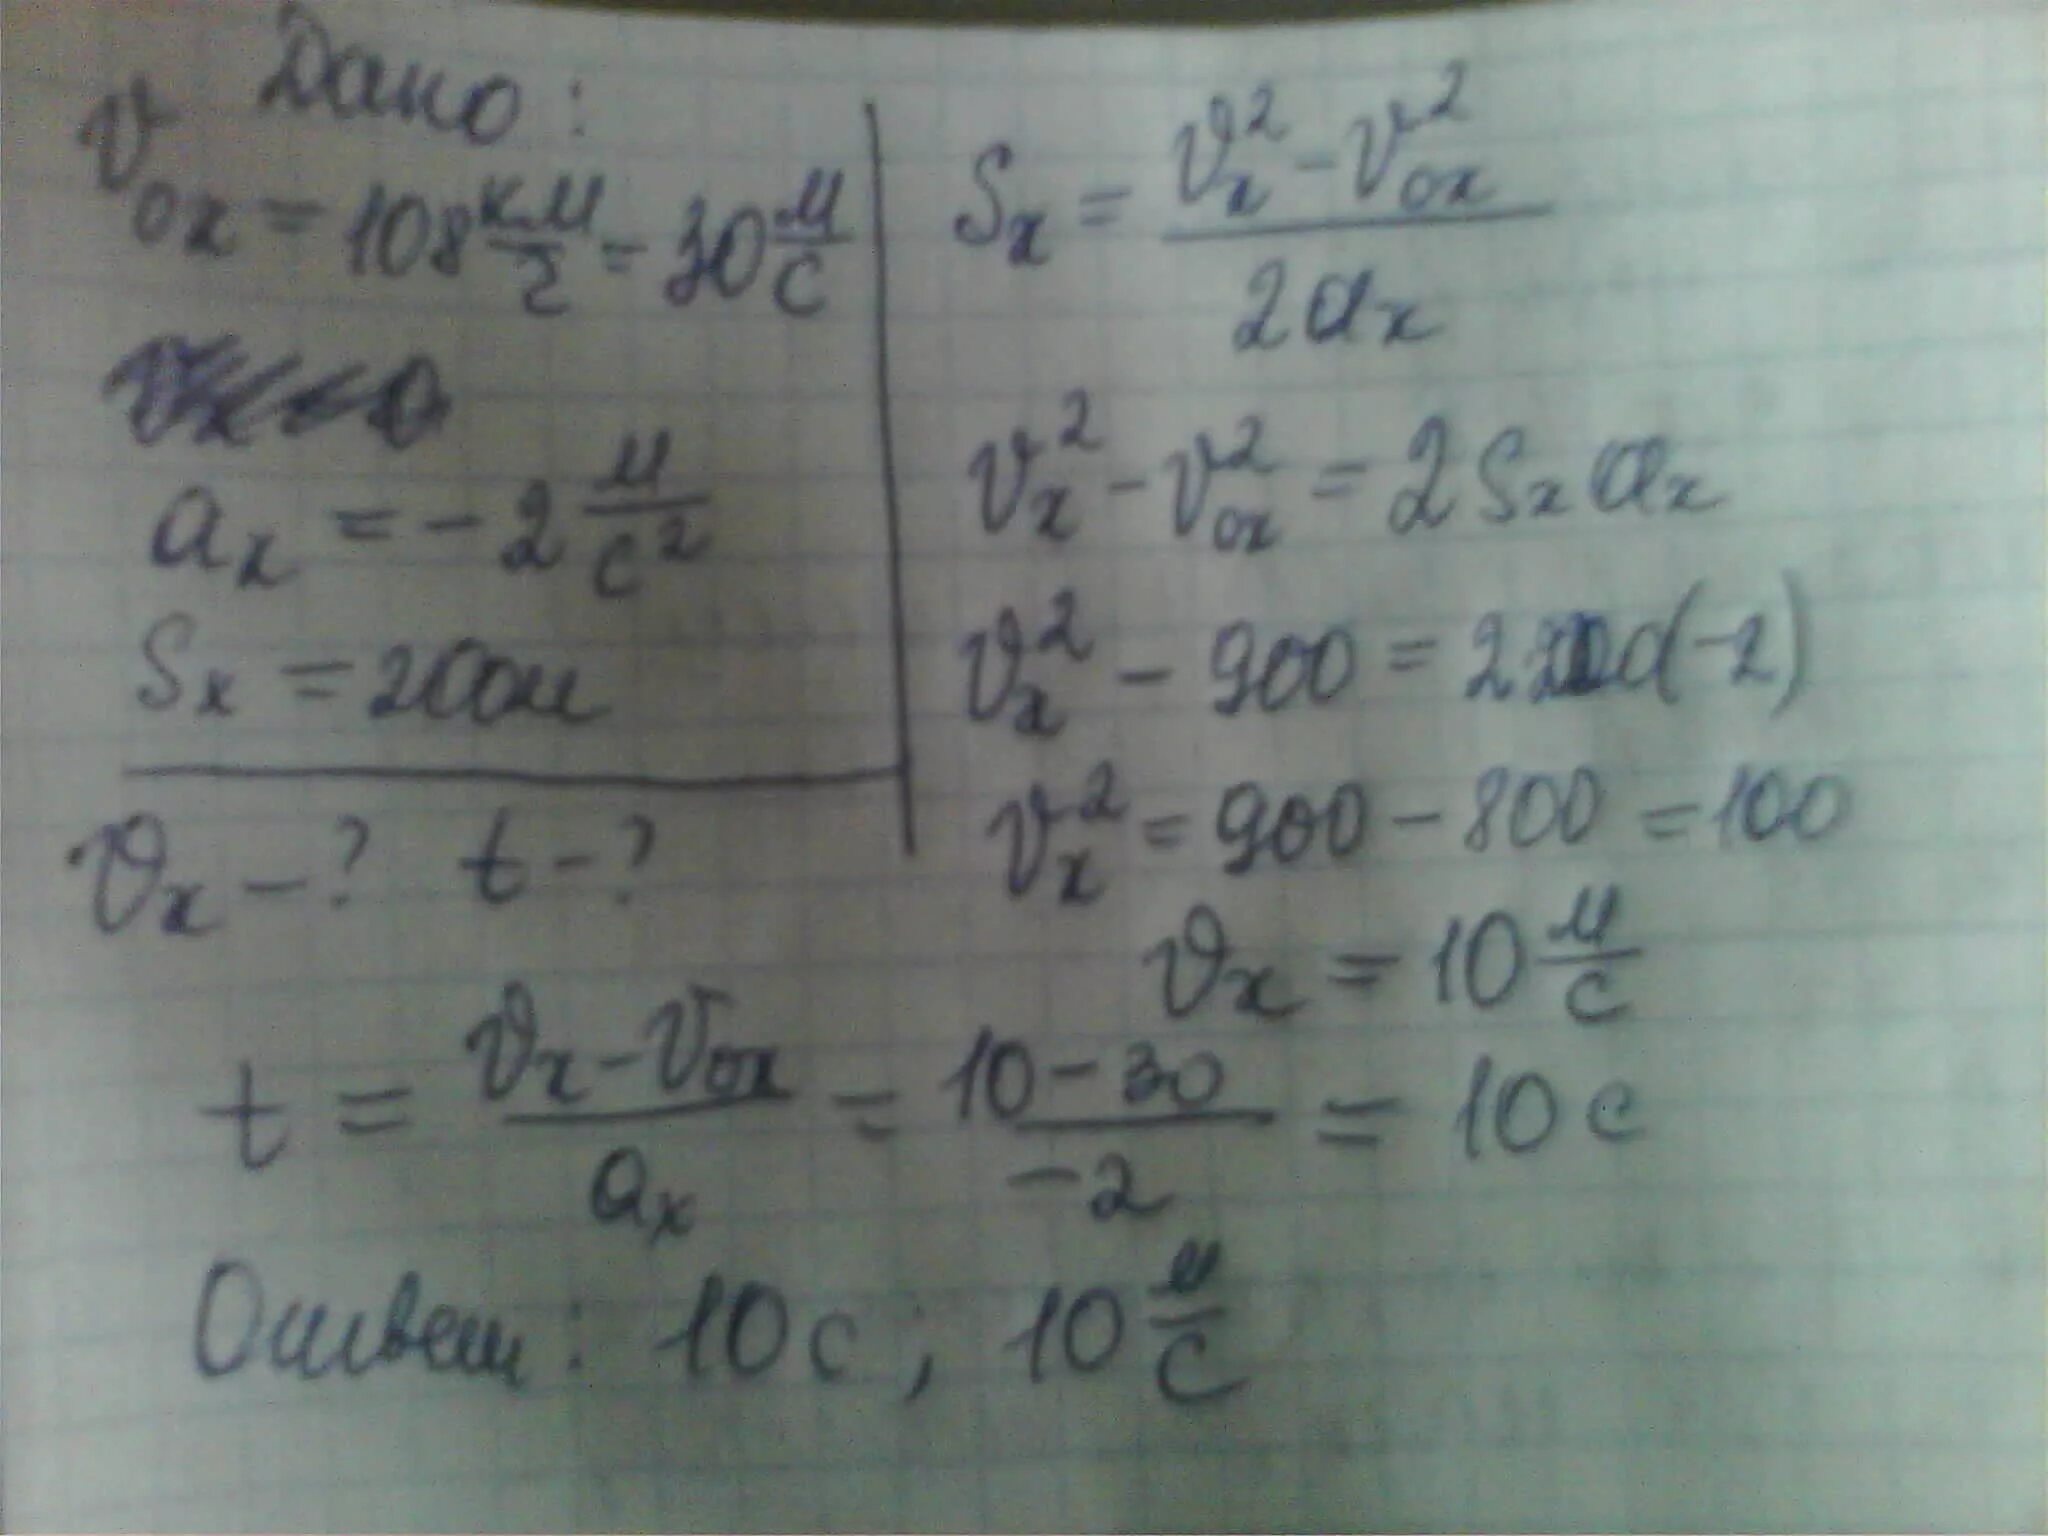 Дано:
v₀ₓ = 108 км/ч = 30 м/с
aₓ = -2 м/с²
Sₓ = 200м
vₓ - ? t - ?
Sₓ = (vₓ² - v₀ₓ²) / 2aₓ
vₓ² - v₀ₓ² = 2Sₓaₓ
vₓ² - 900 = 2 (-2)
vₓ² = 900 - 800 = 100
vₓ = 10 м/с
t = (vₓ - v₀ₓ) / aₓ = (10 - 30) / -2 = 10 с
Ответ: 10 с; 10 м/с